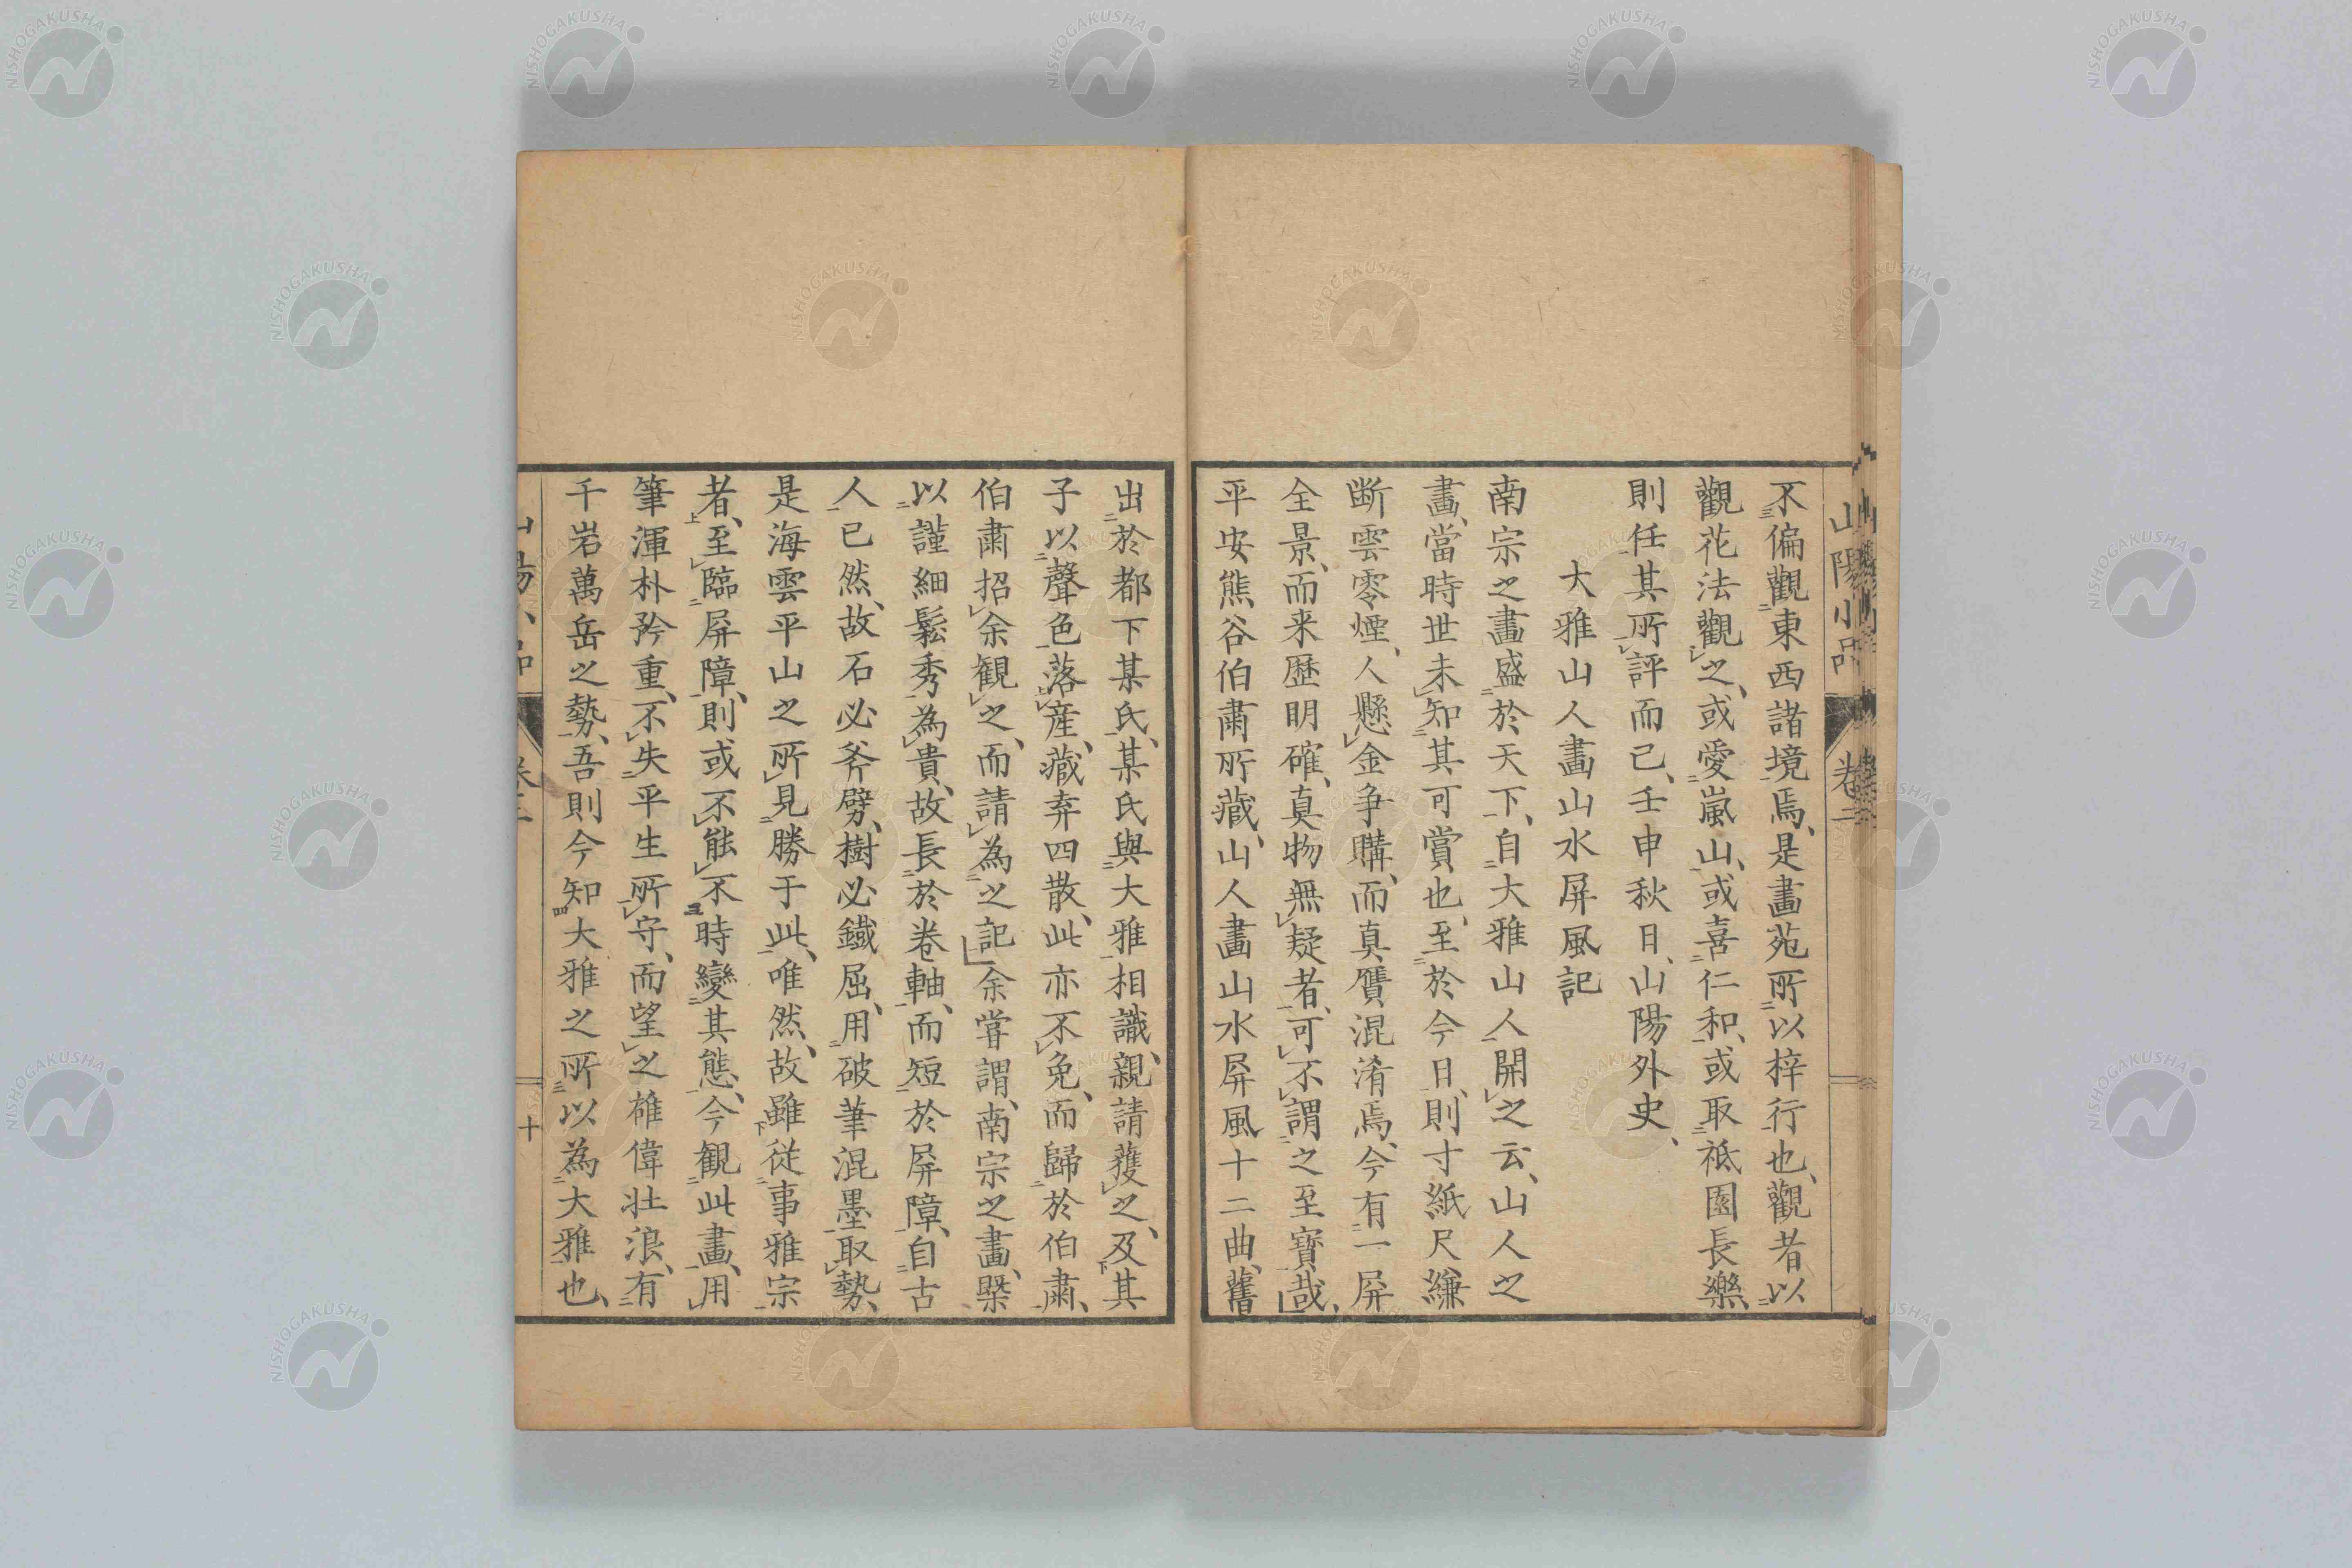 山陽小品 卷二
不偏觀東西諸境焉、是畫苑所以梓行也、觀者以
觀花法觀之、或愛嵐山、或喜仁和、或取祗園長樂、
則任其所評而已、壬申秋日、山陽外史、
大雅山人畫山水屏風記
南宗之畫盛於天下、自大雅山人開之云、山人之
畫、當時世未知其可賞也、至於今日、則寸紙尺縑
断雲零煙、人懸金争購、而真贋混淆焉、今有一屏
全景、而来歷明確、真物無疑者、可不謂之至寶哉、
平安熊谷伯肅所藏、山人畫山水屏風十二曲、舊
出於都下某氏、某氏與大雅相識、親請獲之、及其
子以聲色落産、藏弆四散、此亦不免、而歸於伯肅、
伯肅招余観之、而請為之記、余嘗謂、南宗之畫、槩
以謹細鬆秀為貴、故長於卷軸、而短於屏障、自古
人已然、故石必斧劈、樹必鐵屈、用破筆混墨取勢、
是海雲平山之所見勝于此、唯然、故雖従事雅宗
者、至臨屏障、則或不能不時變其態、今観此畫、用
筆渾朴矜重、不失平生所守、而望之雄偉壮浪、有
千岩萬岳之勢、吾則今知大雅之所以為大雅也、
十
NISHOGAKUSHA